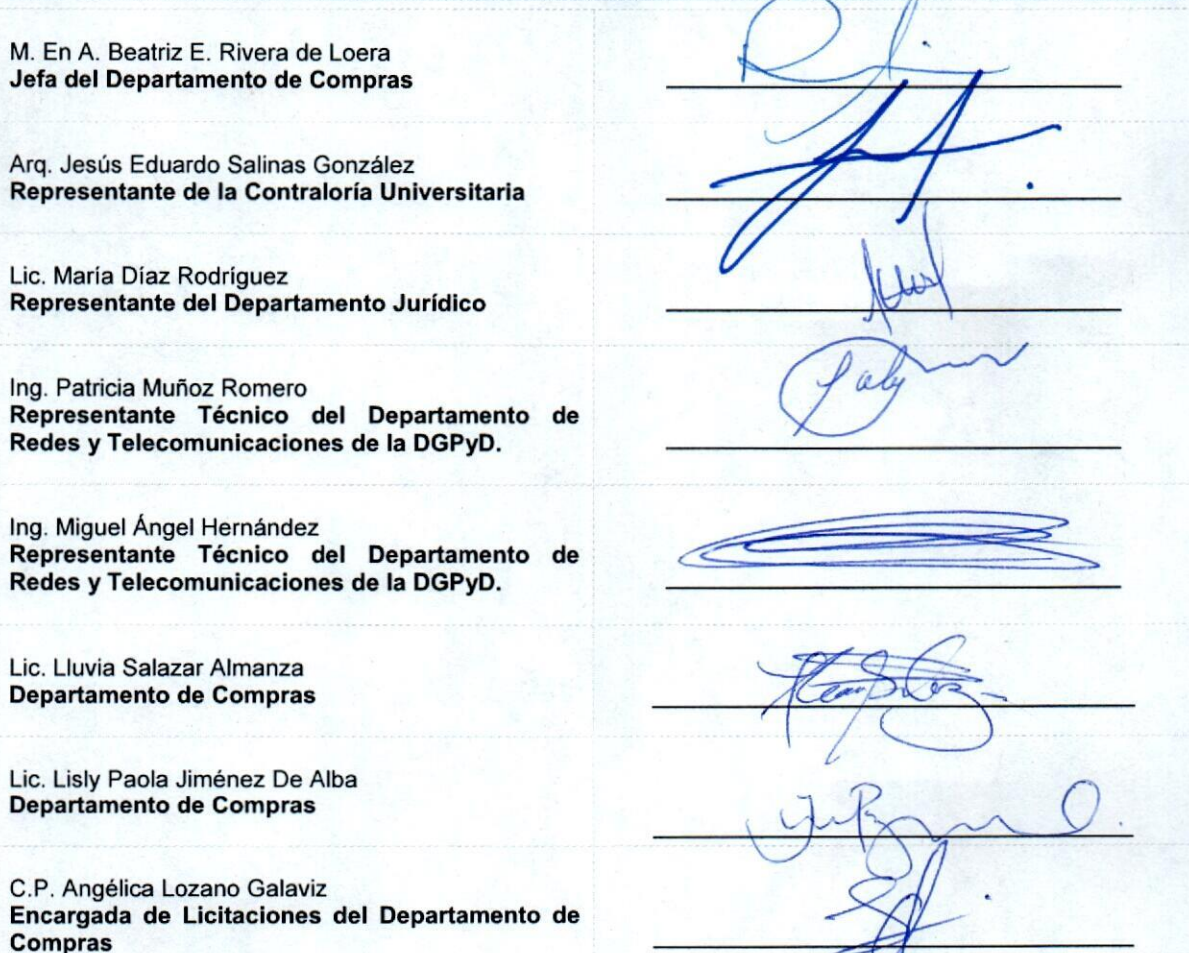 M. En A. Beatriz E. Rivera de Loera
Jefa del Departamento de Compras
Arq. Jesús Eduardo Salinas González
Representante de la Contraloría Universitaria
Lic. María Díaz Rodríguez
Representante del Departamento Jurídico
Ing. Patricia Muñoz Romero
Representante Técnico del Departamento de
Redes y Telecomunicaciones de la DGPyD.
Paty
Ing. Miguel Ángel Hernández
Representante Técnico del Departamento de
Redes y Telecomunicaciones de la DGPyD.
Lic. Lluvia Salazar Almanza
Departamento de Compras
Lic. Lisly Paola Jiménez De Alba
Departamento de Compras
C.P. Angélica Lozano Galaviz
Encargada de Licitaciones del Departamento de
Compras